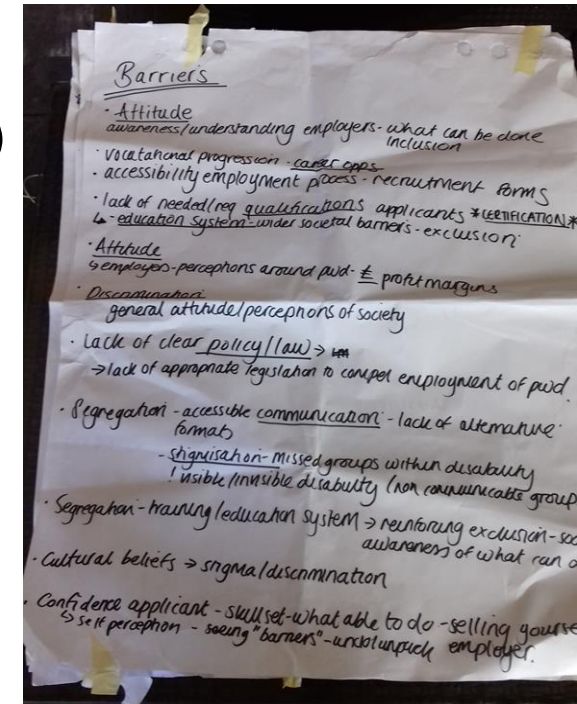 Barriers
· Attitude
awareness/understanding employers - what can be done
inclusion
· vocatational progression - career opps
· accessibility employment process - recruitment forms
· lack of needed/req qualifications applicants *CERTIFICATION*
↳ - education system - wider societal barriers - exclusion
· Attitude
↳ employers - perceptions around pwd - £ profit margins
· Discrimination
general attitude/perceptions of society
· Lack of clear policy/law →
→ lack of appropriate legislation to compel employment of pwd.
· Segregation - accessible communication - lack of alternative
formats
- stigmisation - missed groups within disability
! visible/invisible disability (non communicable group
· Segregation - training/education system → reinforcing exclusion - soc
awareness of what can
· Cultural beliefs → stigma/discrimination
· Confidence applicant - skillset - what able to do - selling yourse
↳ self perception - seeing "barriers" - employer.